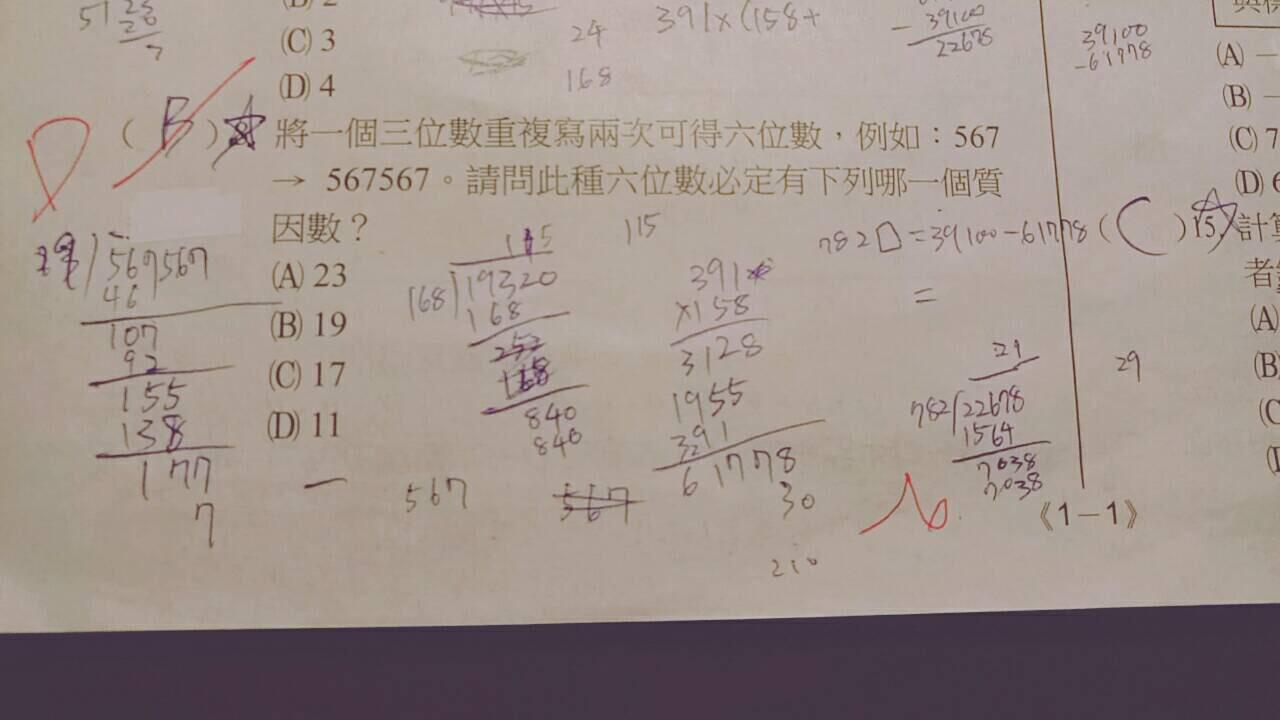 (C) 3
(D) 4
24
168
391×(158+
- 39100
22678
39100
-61778
(A) 一
(B) 一
(C) 7
(D) 6
D
( B ) 將一個三位數重複寫兩次可得六位數，例如：567
→ 567567。請問此種六位數必定有下列哪一個質
因數？
(A) 23
(B) 19
(C) 17
(D) 11
567567
46
107
92
155
138
177
7
115
168 19320
168
252
168
840
840
567
567
115
391
×158
3128
1955
391
61778
30
210
782□=39100-61778
=
29
782 22678
1564
7038
7038
29
( C ) 15. 計
者
(A)
(B)
《1－1》